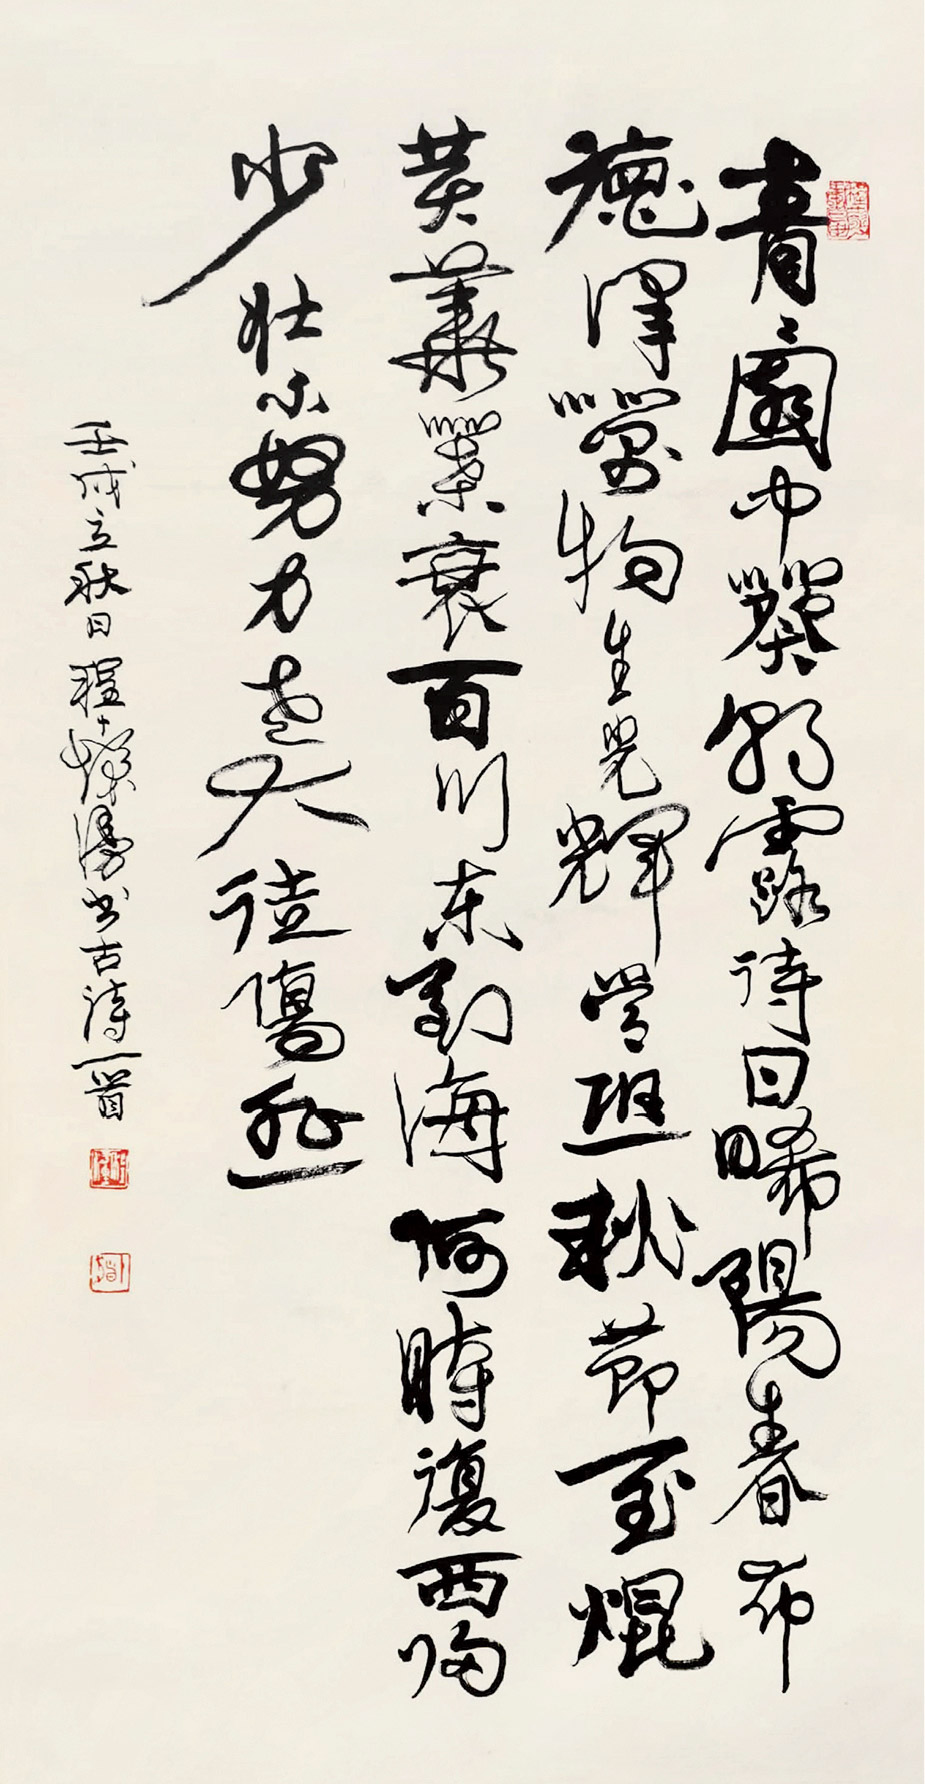 青〻園中葵朝露待日晞陽春布
德澤萬物生光輝常恐秋節至焜
黃華葉衰百川東到海何時復西歸
少壯不努力老大徒傷悲
壬戌立秋日程十髮漫書古詩一首